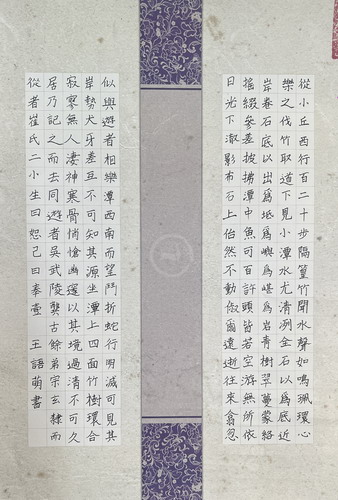 從小丘西行百二十步隔篁竹聞水聲如鳴珮環心
樂之伐竹取道下見小潭水尤清冽全石以為底近
岸卷石底以出為坻為嶼為嵁為岩青樹翠蔓蒙絡
搖綴參差披拂潭中魚可百許頭皆若空游無所依
日光下澈影布石上佁然不動俶爾遠逝往來翕忽
似與遊者相樂潭西南而望鬥折蛇行明滅可見其
岸勢犬牙差互不可知其源坐潭上四面竹樹環合
寂寥無人淒神寒骨悄愴幽邃以其境過清不可久
居乃記之而去同遊者吳武陵龔古餘弟宗玄隸而
從者崔氏二小生曰恕己曰奉壹 王語萌書